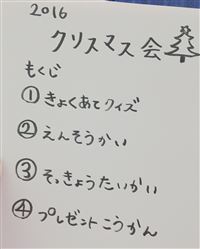 2016
クリスマス会
もくじ
①きょくあてクイズ
②えんそうかい
③そっきょうたいかい
④プレゼントこうかん